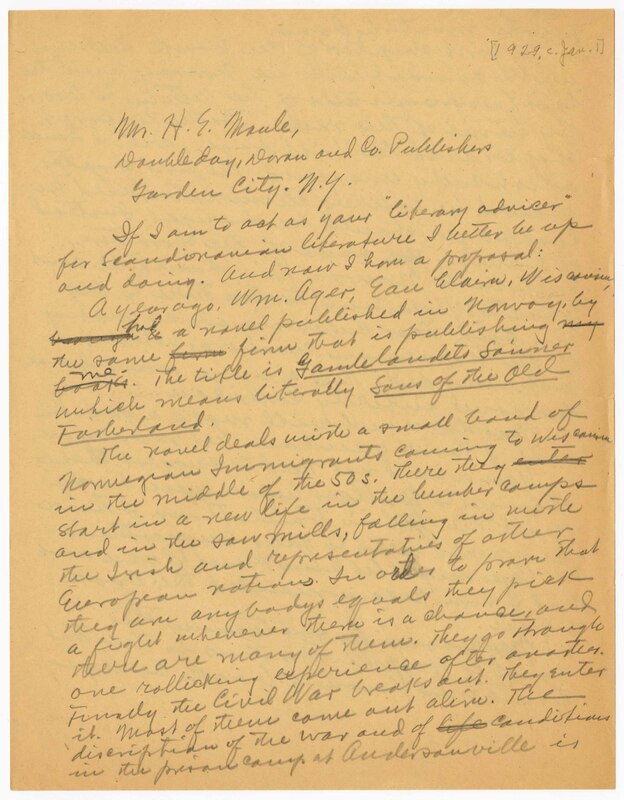 [1929, c. Jan.1]
Mr. H. E. Maule,
Doubleday, Doran and Co. Publishers
Garden City. N.Y.
If I am to act as your "literary advicer"
for Scandianavian literature I better be up
and doing. And now I have a proposal:
A year ago, Wm. Ager, Eau Claire, Wisconsin,
had a novel published in Norway, by
the same firm firm that is publishing my
me books. The title is Gamlelandets Sønner
which means literally Sons of the Old
Fatherland.
The novel deals with a small band of
Norwegian Immigrants coming to Wisconsin
in the middle of the 50s. There they enter
start in a new life in the lumber camps
and in the saw mills, falling in with
the Irish and representatives of other
European nations. In order to prove that
they are anybodys equals they pick
a fight whenever there is a chance, and
there are many of them. They go through
one rollicking experience after another.
Finally the Civil War breaks out. They enter
it. Most of them come out alive. The
discription of the war and of life conditions
in the prison camp at Andersonville is